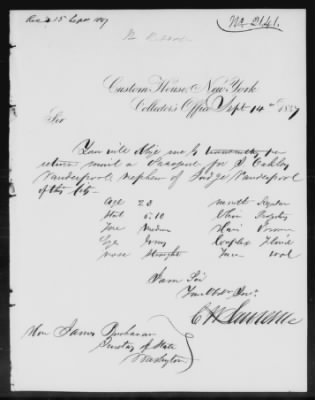 Rec'd 15 Sept 1847
No 2141.
Custom House, New York
Collector's Office Sept 14th 1847
Sir
You will oblige me by transmitting per
return mail a Passport for J Oakley
Vanderpool, nephew of Judge Vanderpool
of this City
Age 23 mouth Regular
Stat 5.10 Chin
Fore Medium Hair Brown
Eyes Grey Complex Florid
nose straight Face oval
I am Sir
Your Obdt Servt.
C W Lawrence
Hon James Buchanan
Secretary of State
Washington